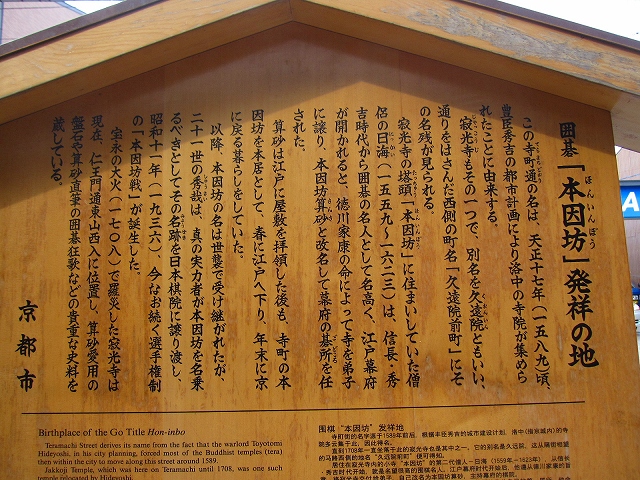 囲碁「本因坊」発祥の地
ほんいんぼう
この寺町通の名は、天正十七年（一五八九）頃、
豊臣秀吉の都市計画により洛中の寺院が集めら
れたことに由来する。
寂光寺もその一つで、別名を久遠院ともいい、
通りをはさんだ西側の町名「久遠院前町」にそ
の名残が見られる。
寂光寺の塔頭「本因坊」に住まいしていた僧
侶の日海（一五五九～一六二三）は、信長・秀
吉時代から囲碁の名人として名高く、江戸幕府
が開かれると、徳川家康の命によって寺を弟子
に譲り、本因坊算砂と改名して幕府の碁所を任
された。
算砂は江戸に屋敷を拝領した後も、寺町の本
因坊を本居として、春に江戸へ下り、年末に京
に戻る暮らしをしていた。
以降、本因坊の名は世襲で受け継がれたが、
二十一世の秀哉は、真の実力者が本因坊を名乗
るべきとしてその名跡を日本棋院に譲り渡し、
昭和十一年（一九三六）、今なお続く選手権制
の「本因坊戦」が誕生した。
宝永の大火（一七〇八）で罹災した寂光寺は
現在、仁王門通東山西入に位置し、算砂愛用の
盤石や算砂直筆の囲碁狂歌などの貴重な史料を
蔵している。
京都市
Birthplace of the Go Title Hon-inbo
Teramachi Street derives its name from the fact that the warlord Toyotomi
Hideyoshi, in his city planning, forced most of the Buddhist temples (tera)
then within the city to move along this street around 1589.
Jakkoji Temple, which was here on Teramachi until 1708, was one such
temple relocated by Hideyoshi.
围棋“本因坊”发祥地
A